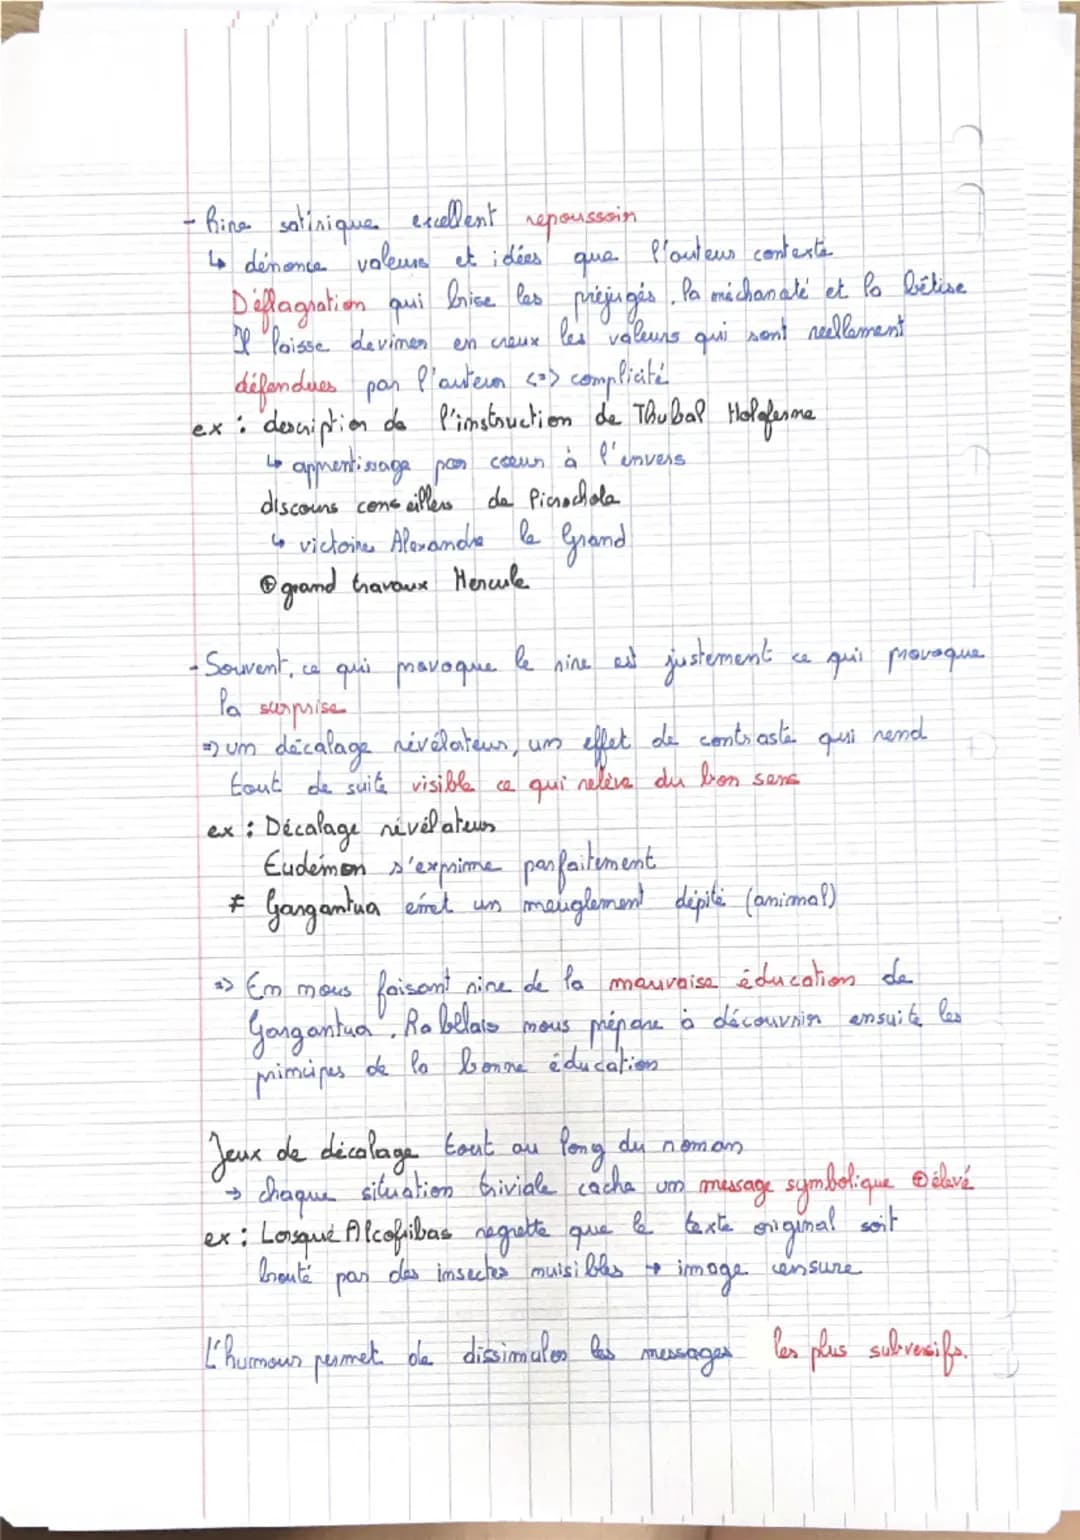 - Rire satirique excellent repoussoir
↳ dénonce valeurs et idées que l'auteur conteste
Déflagration qui brise les préjugés, la méchanceté et la bêtise
Il laisse deviner en creux les valeurs qui sont reellement
défendues par l'auteur <=> complicité
ex : description de l'instruction de Thubal Holoferne
↳ apprentissage par coeur à l'envers
discours conseillers de Picrochole
↳ victoire Alexandre le Grand
⊕ grand travaux Hercule
- Souvent, ce qui provoque le rire est justement ce qui provoque
la surprise
=> un décalage révélateur, un effet de contraste qui rend
tout de suite visible ce qui relève du bon sens
ex : Décalage révélateur
Eudémon s'exprime parfaitement
≠ Gargantua émet un meuglement dépité (animal)
=> En nous faisant rire de la mauvaise éducation de
Gargantua, Rabelais nous prépare à découvrir ensuite les
principes de la bonne éducation
Jeux de décalage tout au long du roman
→ chaque situation triviale cache un message symbolique ⊕ élevé
ex : Lorsque Alcofribas regrette que le texte original soit
brouté par des insectes nuisibles → image censure
L'humour permet de dissimuler les messages les plus subversifs.